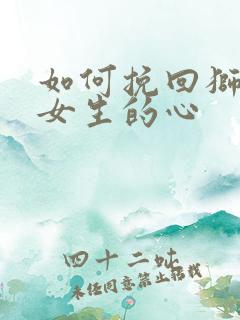 如何挽回獅
女生的心
四十二㕥
未经同意禁止转载